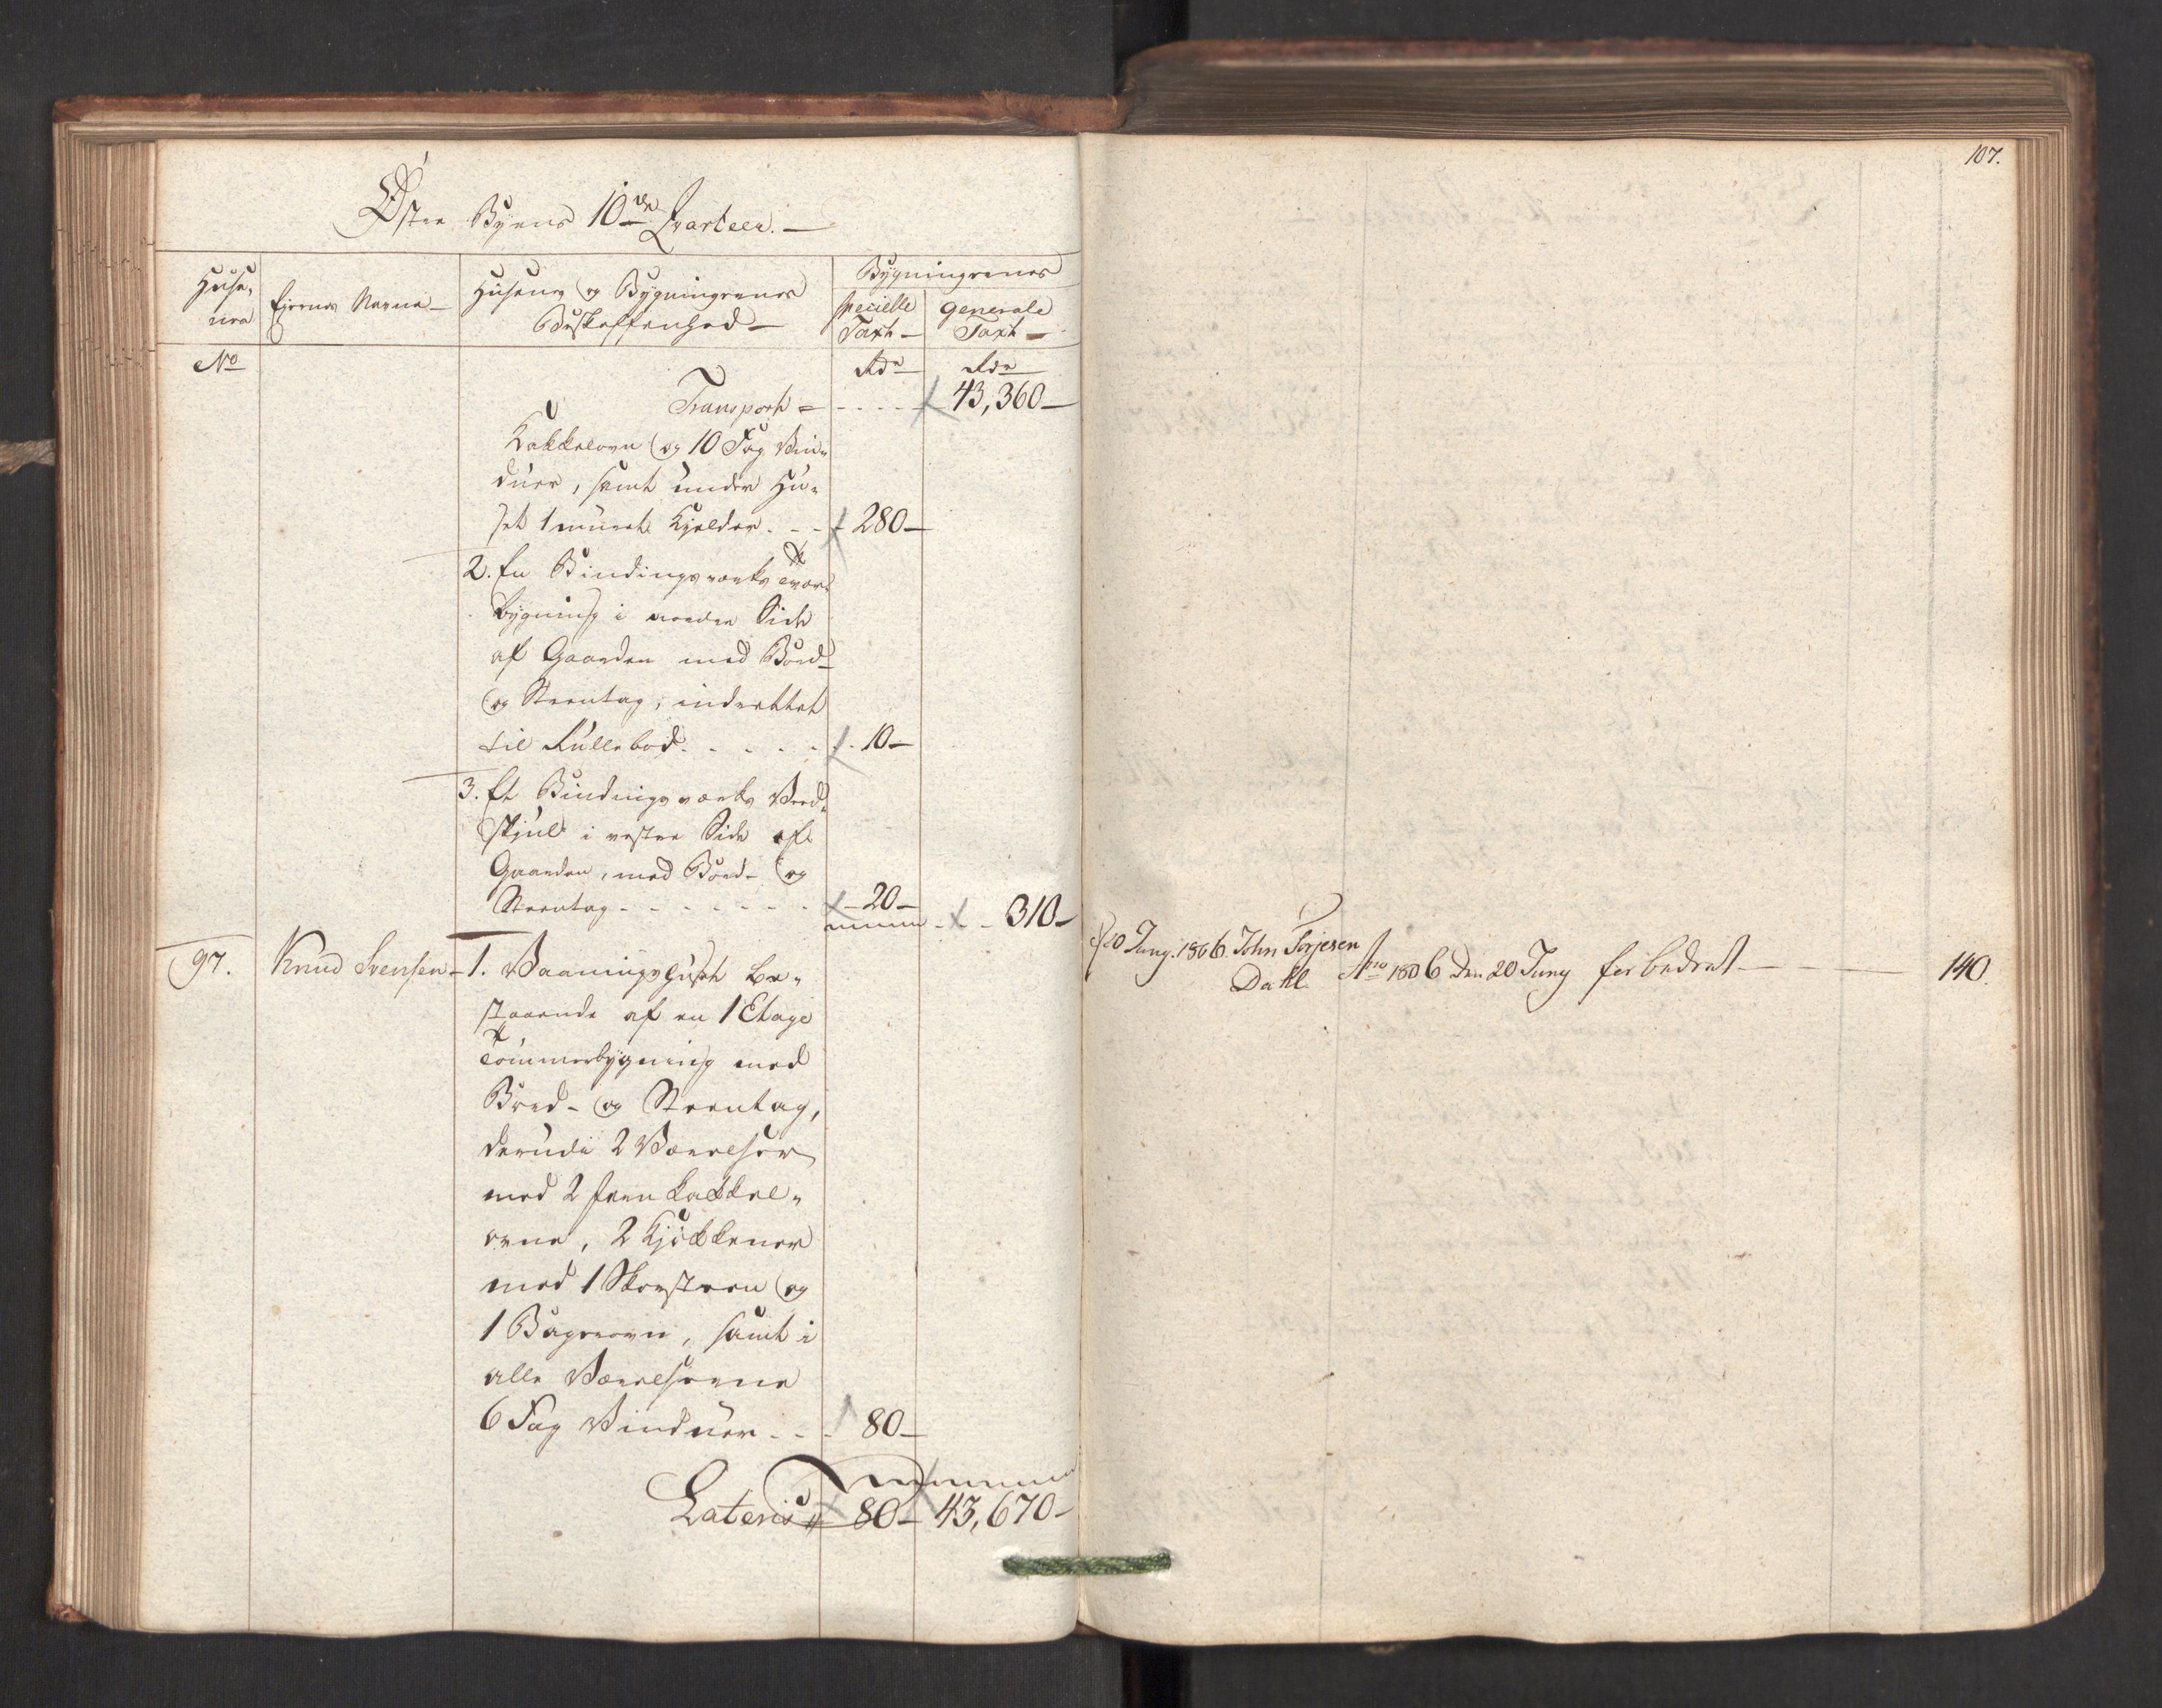 Østre Byens 10de Qvarteer.
Huse-
nes
Ejernes Navne
Husenes og Bygningernes
Beskaffenhed
Bygningernes
specielle
Taxt
generale
Taxt
No
Rdr
Rdr
Transport = 43,360
Kakkelovn og 10 Fag Vin-
duer, samt under Hu-
set 1 muret Kjelder. 280
2. En Bindingsverks Tver-
bygning i nordre Side
af Gaarden med Bord-
og Steentag, indrettet
til Rullebod. 10
3. Et Bindingsverks Ved-
skjul i vestre Side af
Gaarden, med Bord- og
Steentag 20 310
97. Knud Svensen 1. Vaaningshuset be-
staaende af en 1 Etage
Tømmerbygning med
Bord- og Steentag,
derudi 2 Værelser
med 2 Jern kakkel-
ovne, 2 Kjøkkener
med 1 Skorsteen og
1 Bagerovn, samt i
alle Værelserne
6 Fag Vinduer 80
Lateris 80 43,670
107.
20 Juny 1806. John Torjesen
Dahl. Ano 1806 den 20 Juny forbedret 140.